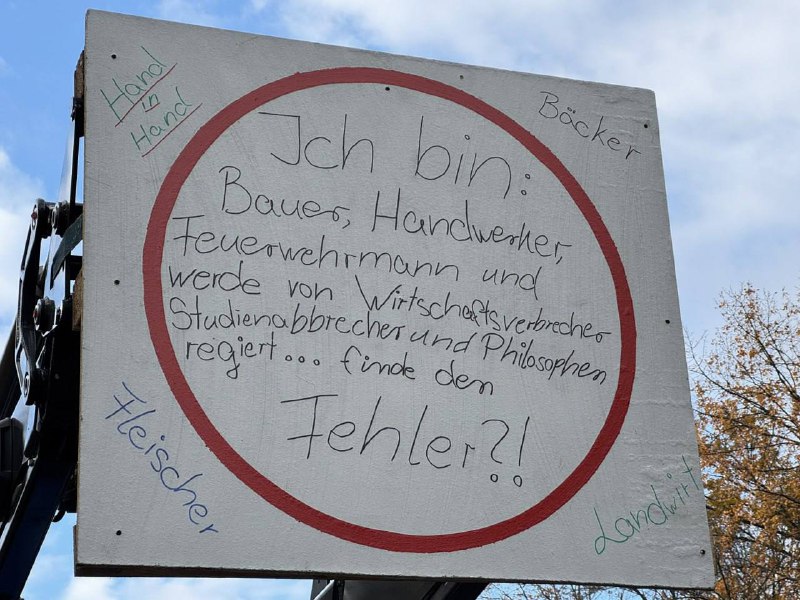 Hand
in
Hand
Bäcker
Ich bin:
Bauer, Handwerker,
Feuerwehrmann und
werde von Wirtschaftsverbrecher
Studienabbrecher und Philosophen
regiert... finde den
Fehler?!
Fleischer
Landwirt